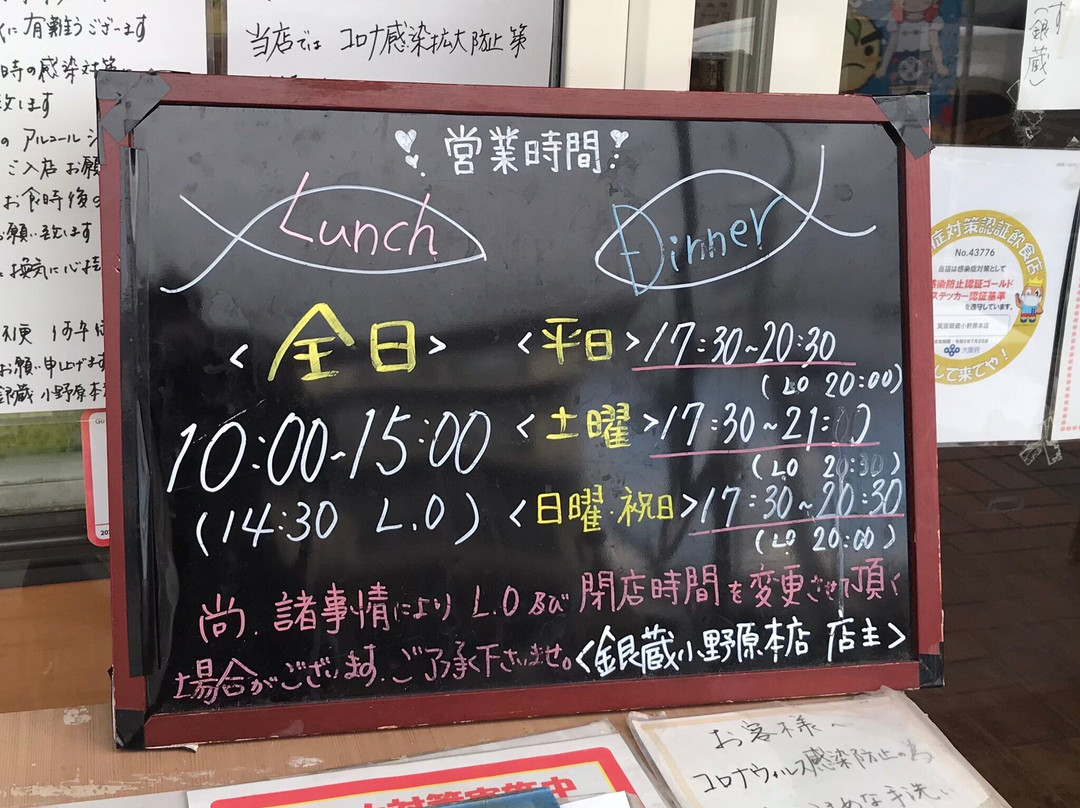 に有難うございます
時の感染対策
致します
の アルコール
ご入店 お願
お食時後の
お願い致します
換気に心掛
お願い申し上げます
銀蔵 小野原本
当店では コロナ感染拡大防止 策
す
(銀蔵)
営業時間
Lunch
<全日>
10:00~15:00
(14:30 L.O)
Dinner
<平日>17:30~20:30
(LO 20:00)
<土曜>17:30~21:00
(LO 20:30)
<日曜・祝日>17:30~20:30
(LO 20:00)
尚、諸事情により L.O 及び 閉店時間を変更させて頂く
場合がございます、ご了承下さいませ。<銀蔵小野原本店 店主>
症対策認証飲食店
No.43776
当店は感染症対策として
感染防止認証ゴールド
ステッカー認証基準
を遵守しています。
大阪府
して来てや!
お客様へ
コロナウィルス感染防止の為
手洗い